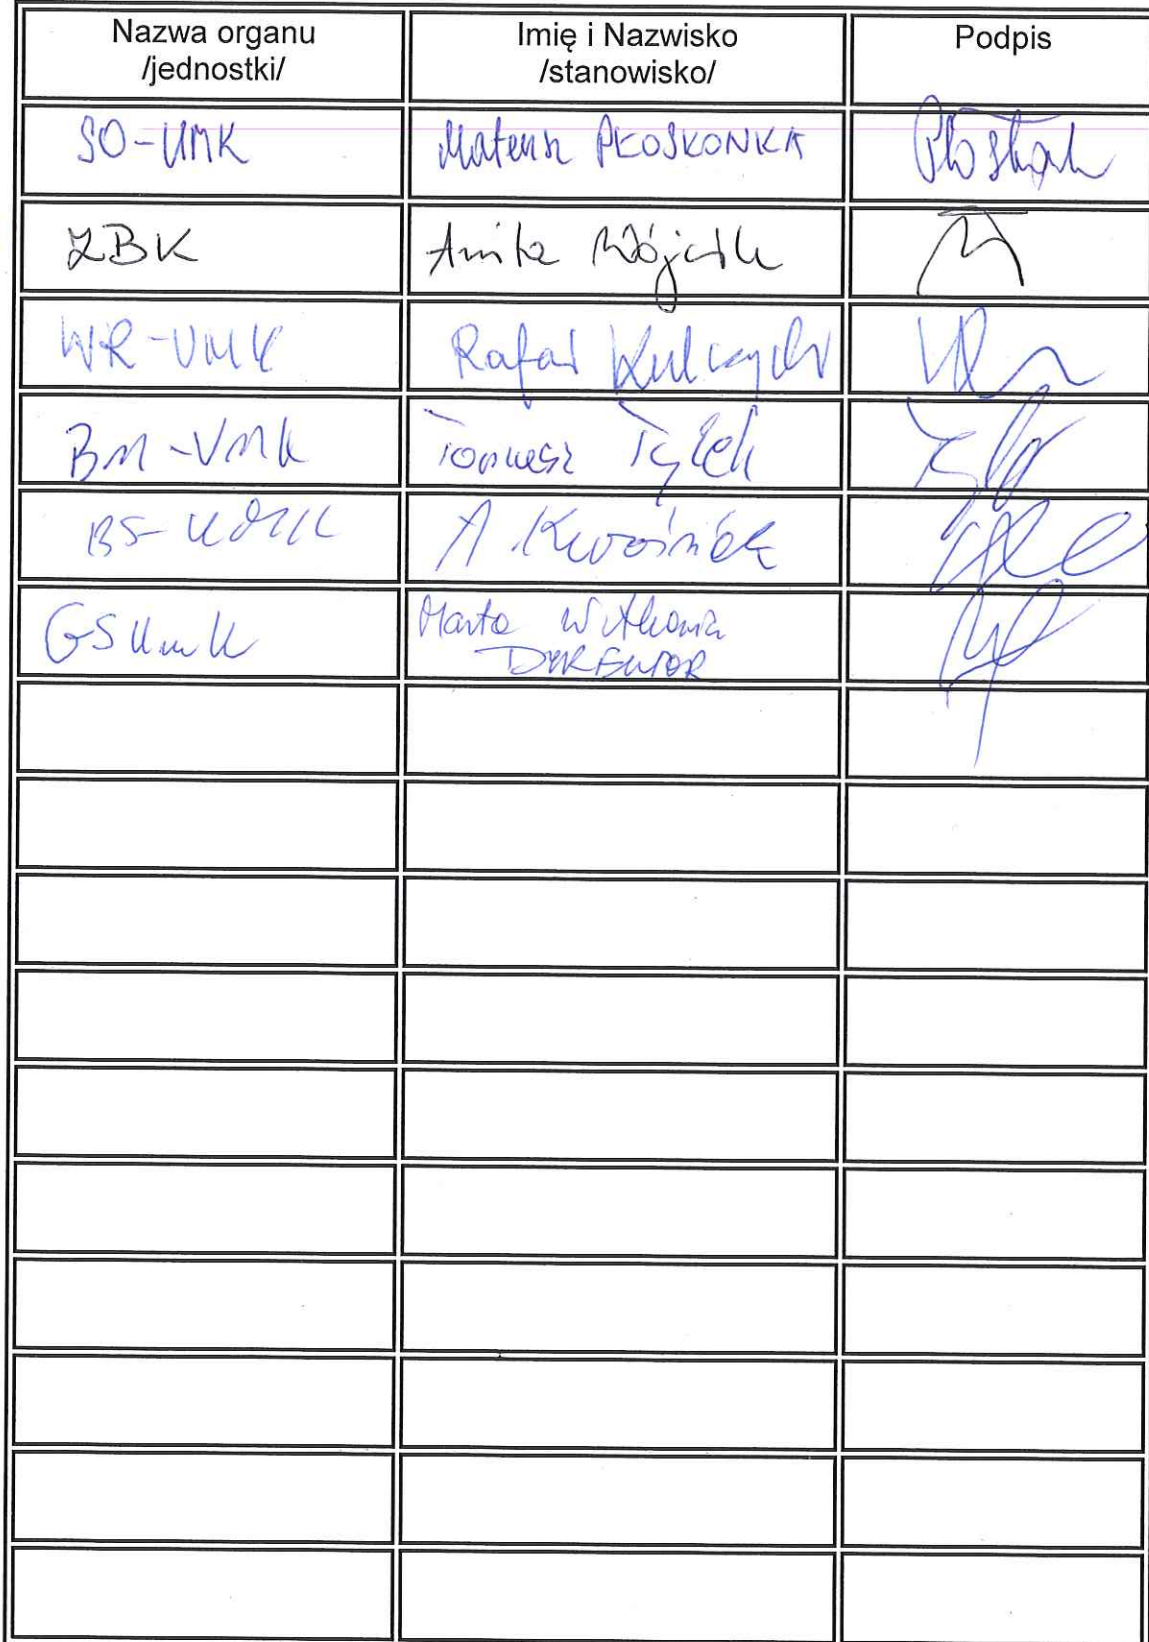 Nazwa organu
/jednostki/
Imię i Nazwisko
/stanowisko/
Podpis
SO-UMK
Mateusz PŁOSKONKA
ZBK
Anita Wójcik
WR-UMK
Rafał Kulczycki
BM-UMK
Tomasz Tylek
BS-UMK
A
GS UMK
Marta
DYREKTOR